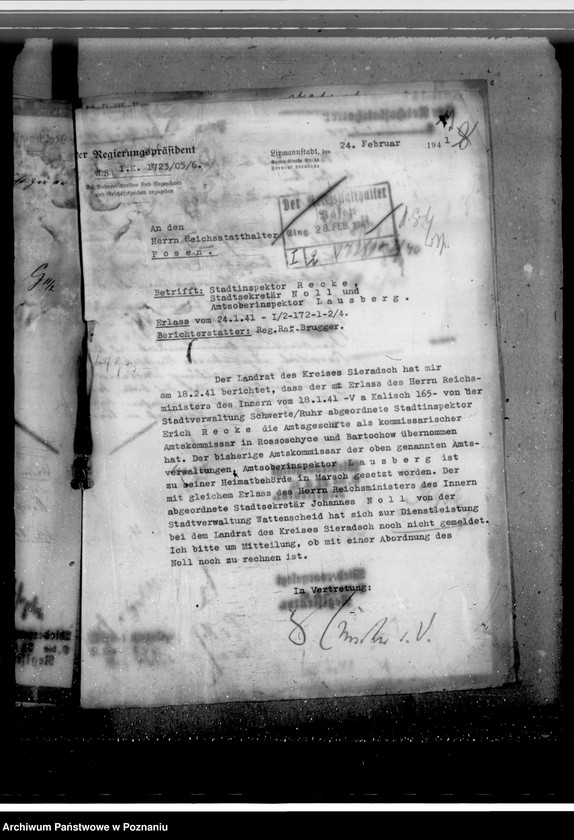 Der Regierungspräsident
Litzmannstadt, den
24. Februar 1941
I.K. 1723/05/6.
Der Reichsstatthalter
Posen
Eing. 28. FEB. 1941
I/2
An den
Herrn Reichsstatthalter
Posen.
Betrifft: Stadtinspektor Recke,
Stadtsekretär Noll und
Amtsoberinspektor Lausberg.
Erlass vom 24.1.41 - I/2-172-1-2/4.
Berichterstatter: Reg.Rat Brugger.
Der Landrat des Kreises Sieradsch hat mir
am 18.2.41 berichtet, dass der mit Erlass des Herrn Reichs-
ministers des Innern vom 18.1.41 -V a Kalisch 165- von der
Stadtverwaltung Schwerte/Ruhr abgeordnete Stadtinspektor
Erich Recke die Amtsgeschäfte als kommissarischer
Amtskommissar in Rossoschyce und Bartochow übernommen
hat. Der bisherige Amtskommissar der oben genannten Amts-
verwaltungen, Amtsoberinspektor Lausberg ist
zu seiner Heimatbehörde in Marsch gesetzt worden. Der
mit gleichem Erlass des Herrn Reichsministers des Innern
abgeordnete Stadtsekretär Johannes Noll von der
Stadtverwaltung Wattenscheid hat sich zur Dienstleistung
bei dem Landrat des Kreises Sieradsch noch nicht gemeldet.
Ich bitte um Mitteilung, ob mit einer Abordnung des
Noll noch zu rechnen ist.
In Vertretung:
i.V.
Archiwum Państwowe w Poznaniu